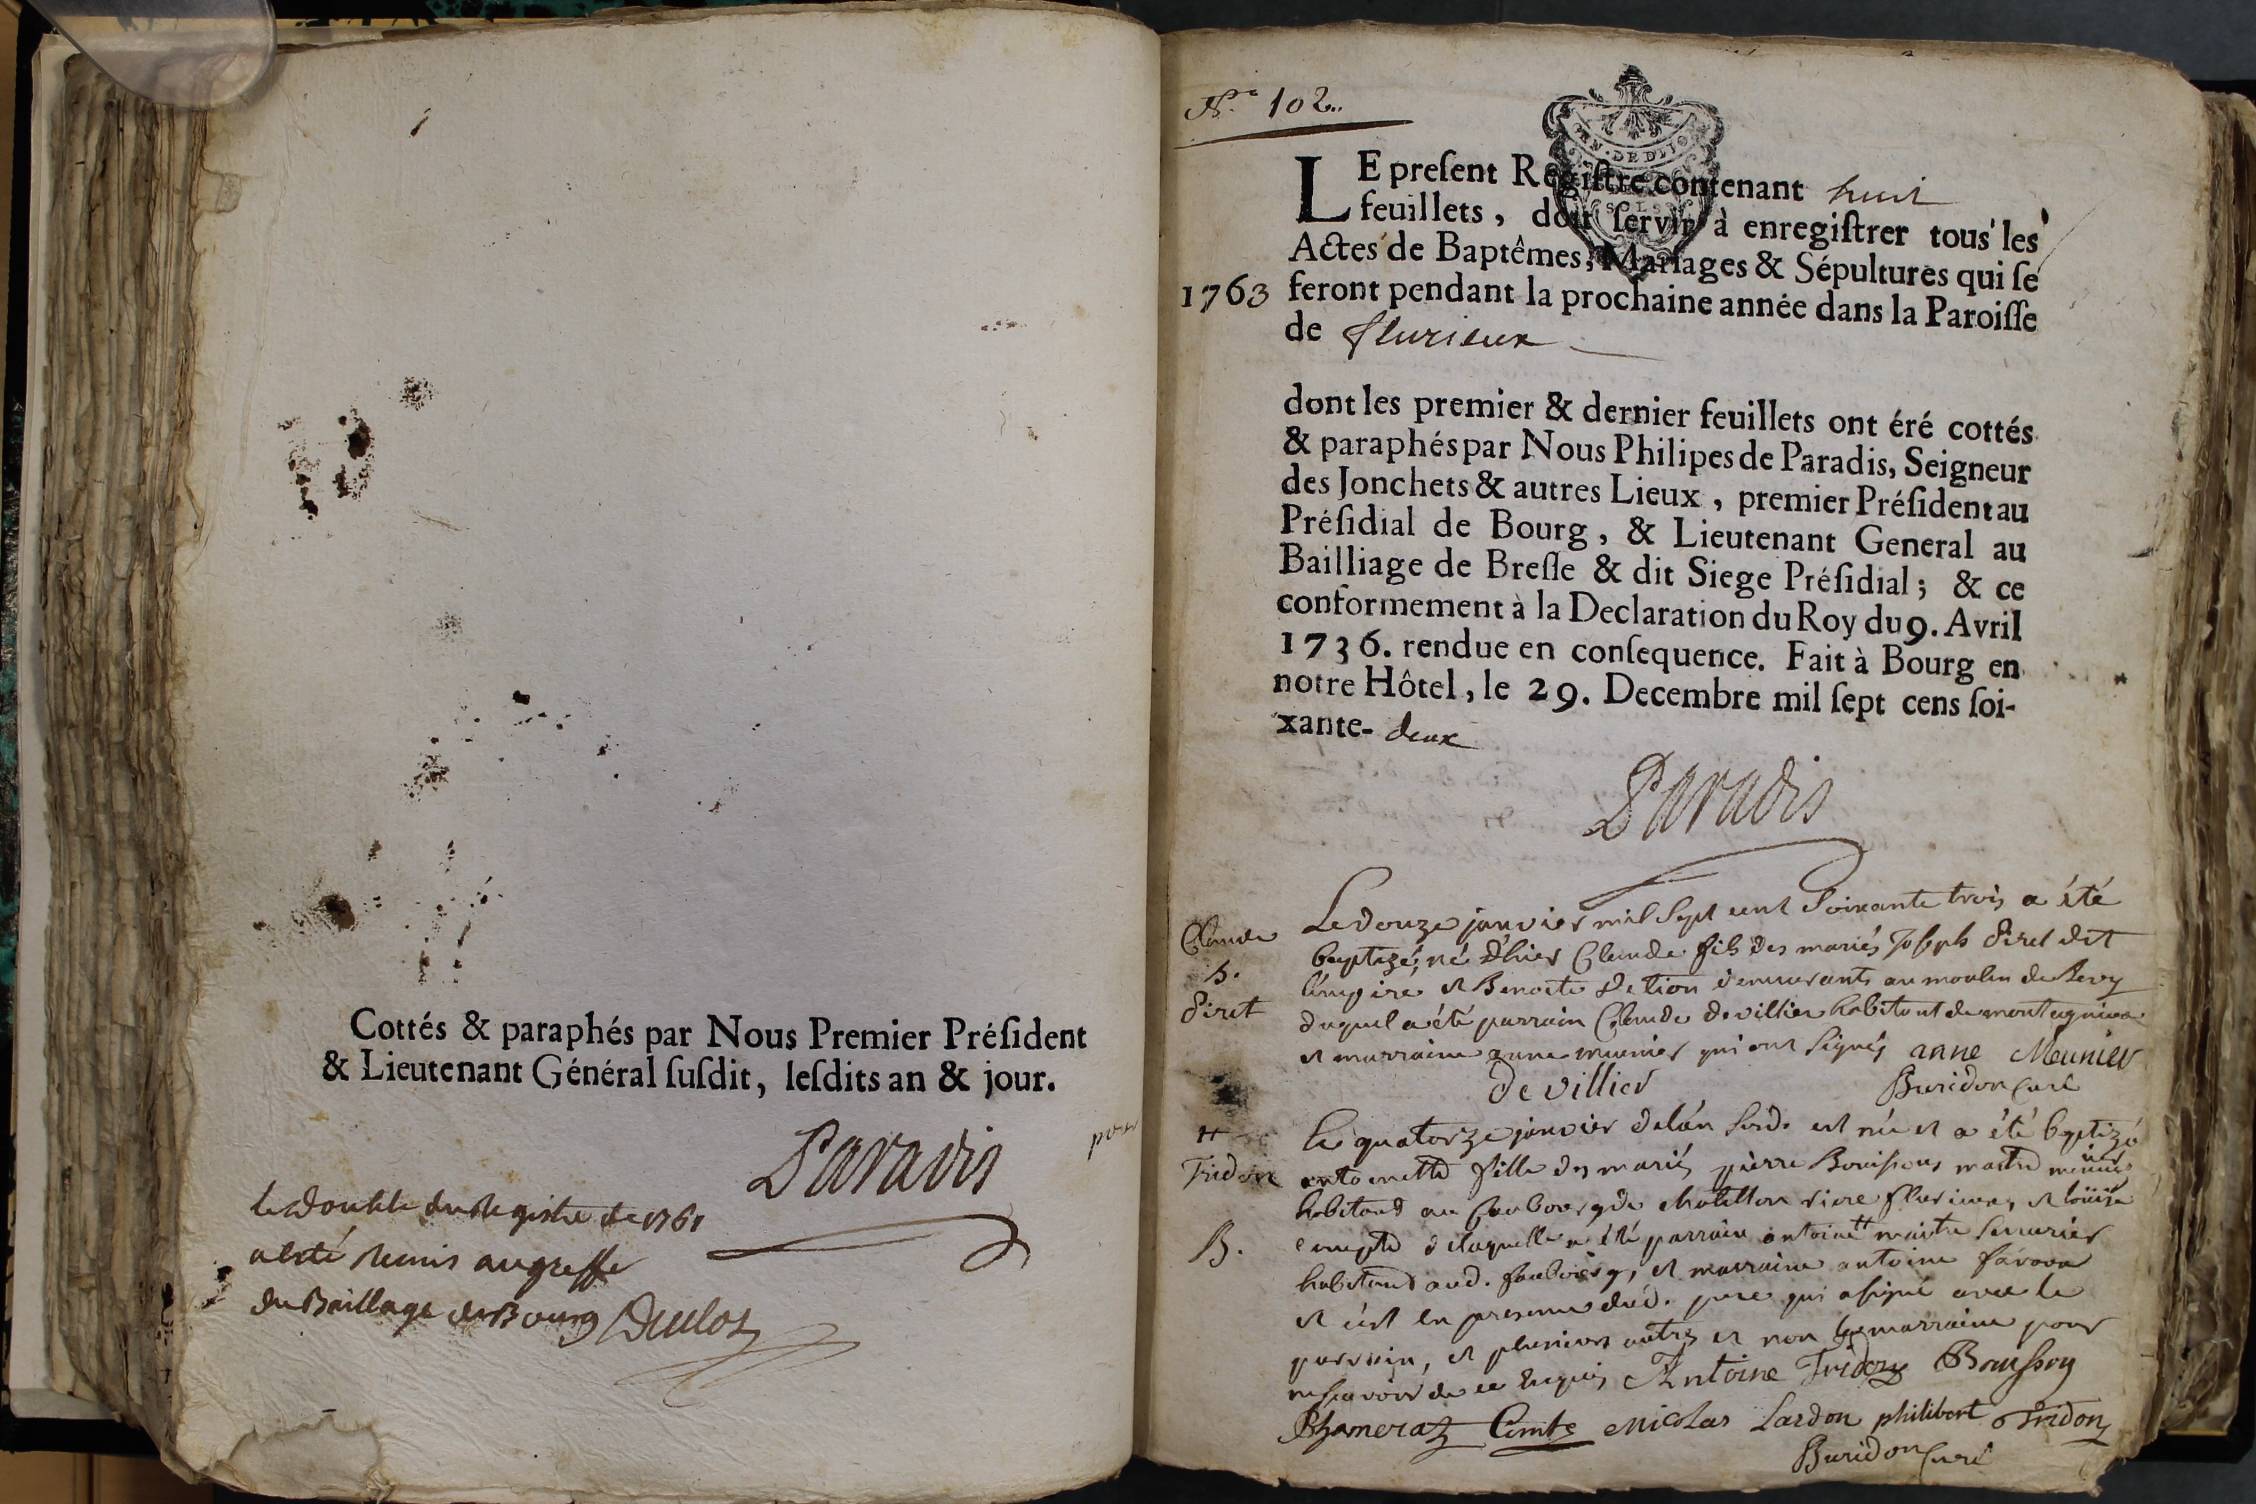 Cottés & paraphés par Nous Premier Préſident
& Lieutenant Général ſuſdit, leſdits an & jour.
Paradis
le double du Registre de 1761
a eté remis au greffe
du Baillage de Bourg Duclos
pour
N.° 102..
GEN. DE DIJON
SOLS
LE preſent Regiſtre contenant huit
feuillets, doit ſervir à enregiſtrer tous les
Actes de Baptêmes, Mariages & Sépultures qui ſe
1763 feront pendant la prochaine année dans la Paroiſſe
de flurieux
dont les premier & dernier feuillets ont éré cottés
& paraphés par Nous Philipes de Paradis, Seigneur
des Jonchets & autres Lieux, premier Préſident au
Préſidial de Bourg, & Lieutenant General au
Bailliage de Breſſe & dit Siege Préſidial; & ce
conformement à la Declaration du Roy du 9. Avril
1736. rendue en conſequence. Fait à Bourg en
notre Hôtel, le 29. Decembre mil ſept cens ſoi-
xante- deux
Paradis
Claude
b.
Piret
Le douze janvier mil Sept cent Soixante trois a été
baptizé, né d'hier Claude fils des mariés Joseph Piret dit
l'empire et Benoite demeurants au moulin de
duquel a été parrain Claude devillier habitant de
et marraine anne meunier qui ont signés anne Meunier
De villier Buridon curé
++
Tridon
B.
le quatorze janvier de l'an susd. est née et a été baptizé
antoinette fille des mariés pierre Bouisson maitre
habitand au faubourg de chatillon riere flurieux, et loüise
compte de laquelle a été parrain antoine ++ maitre serrurier
habitand aud. faubourg, et marraine antoine
et c'est en presence dud. pere qui a signé avec le
parrain, et plusieurs autres et non la marraine pour
ne sçavoir de ce enquis Antoine Tridon Bouisson
Comte Nicolas Lardon philibert Tridon
Buridon curé